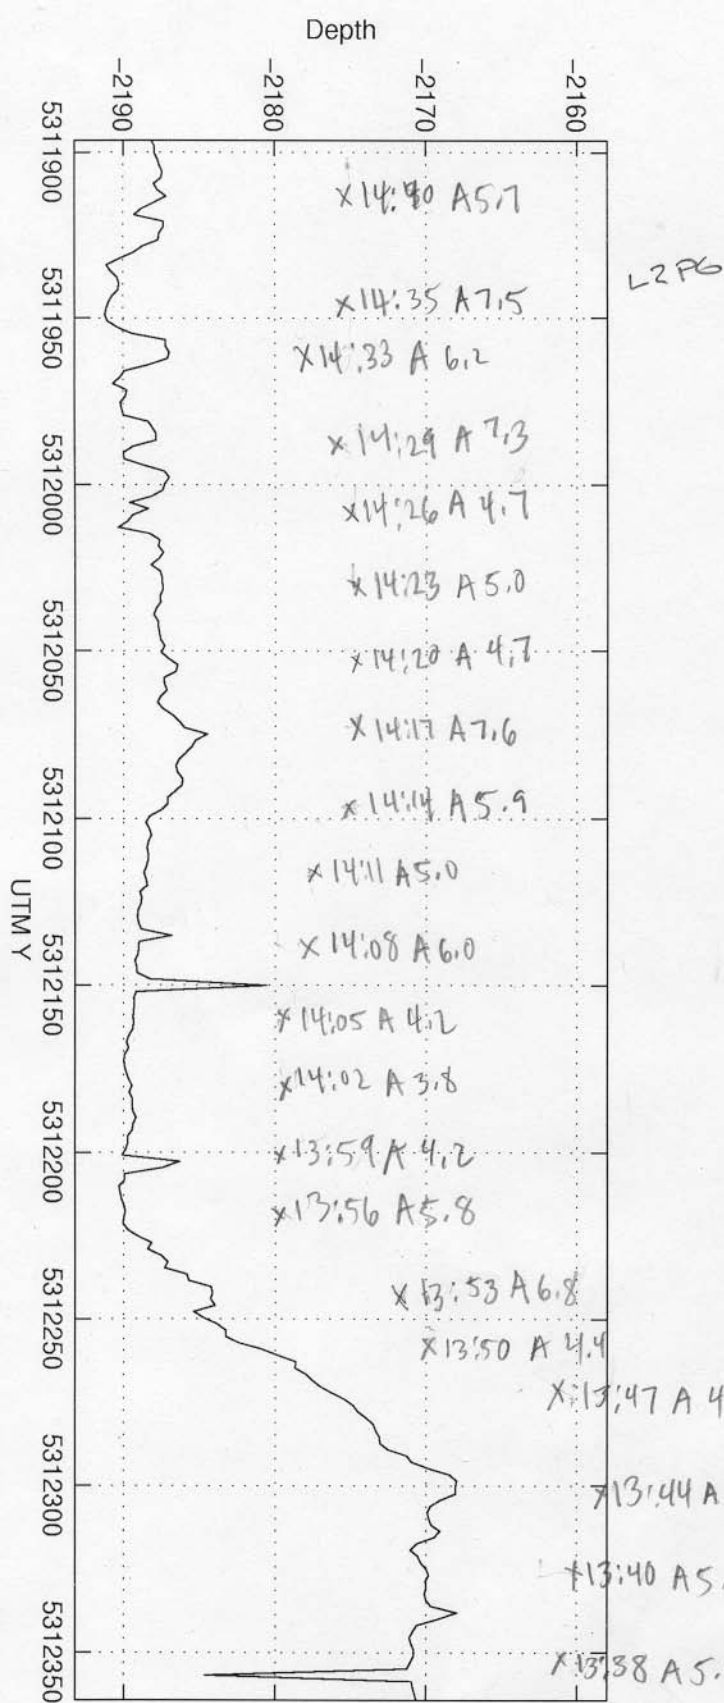 Depth
-2190
-2180
-2170
-2160
5311900
5311950
5312000
5312050
5312100
5312150
5312200
5312250
5312300
5312350
UTM Y
L2 PG
x 14:40 A 5.7
x 14:35 A 7.5
x 14:33 A 6.2
x 14:29 A 7.3
x 14:26 A 4.7
x 14:23 A 5.0
x 14:20 A 4.7
x 14:17 A 7.6
x 14:14 A 5.9
x 14:11 A 5.0
x 14:08 A 6.0
x 14:05 A 4.2
x 14:02 A 3.8
x 13:59 A 4.2
x 13:56 A 5.8
x 13:53 A 6.8
x 13:50 A 4.4
x 13:47 A 4
x 13:44 A
x 13:40 A 5.
x 13:38 A 5.